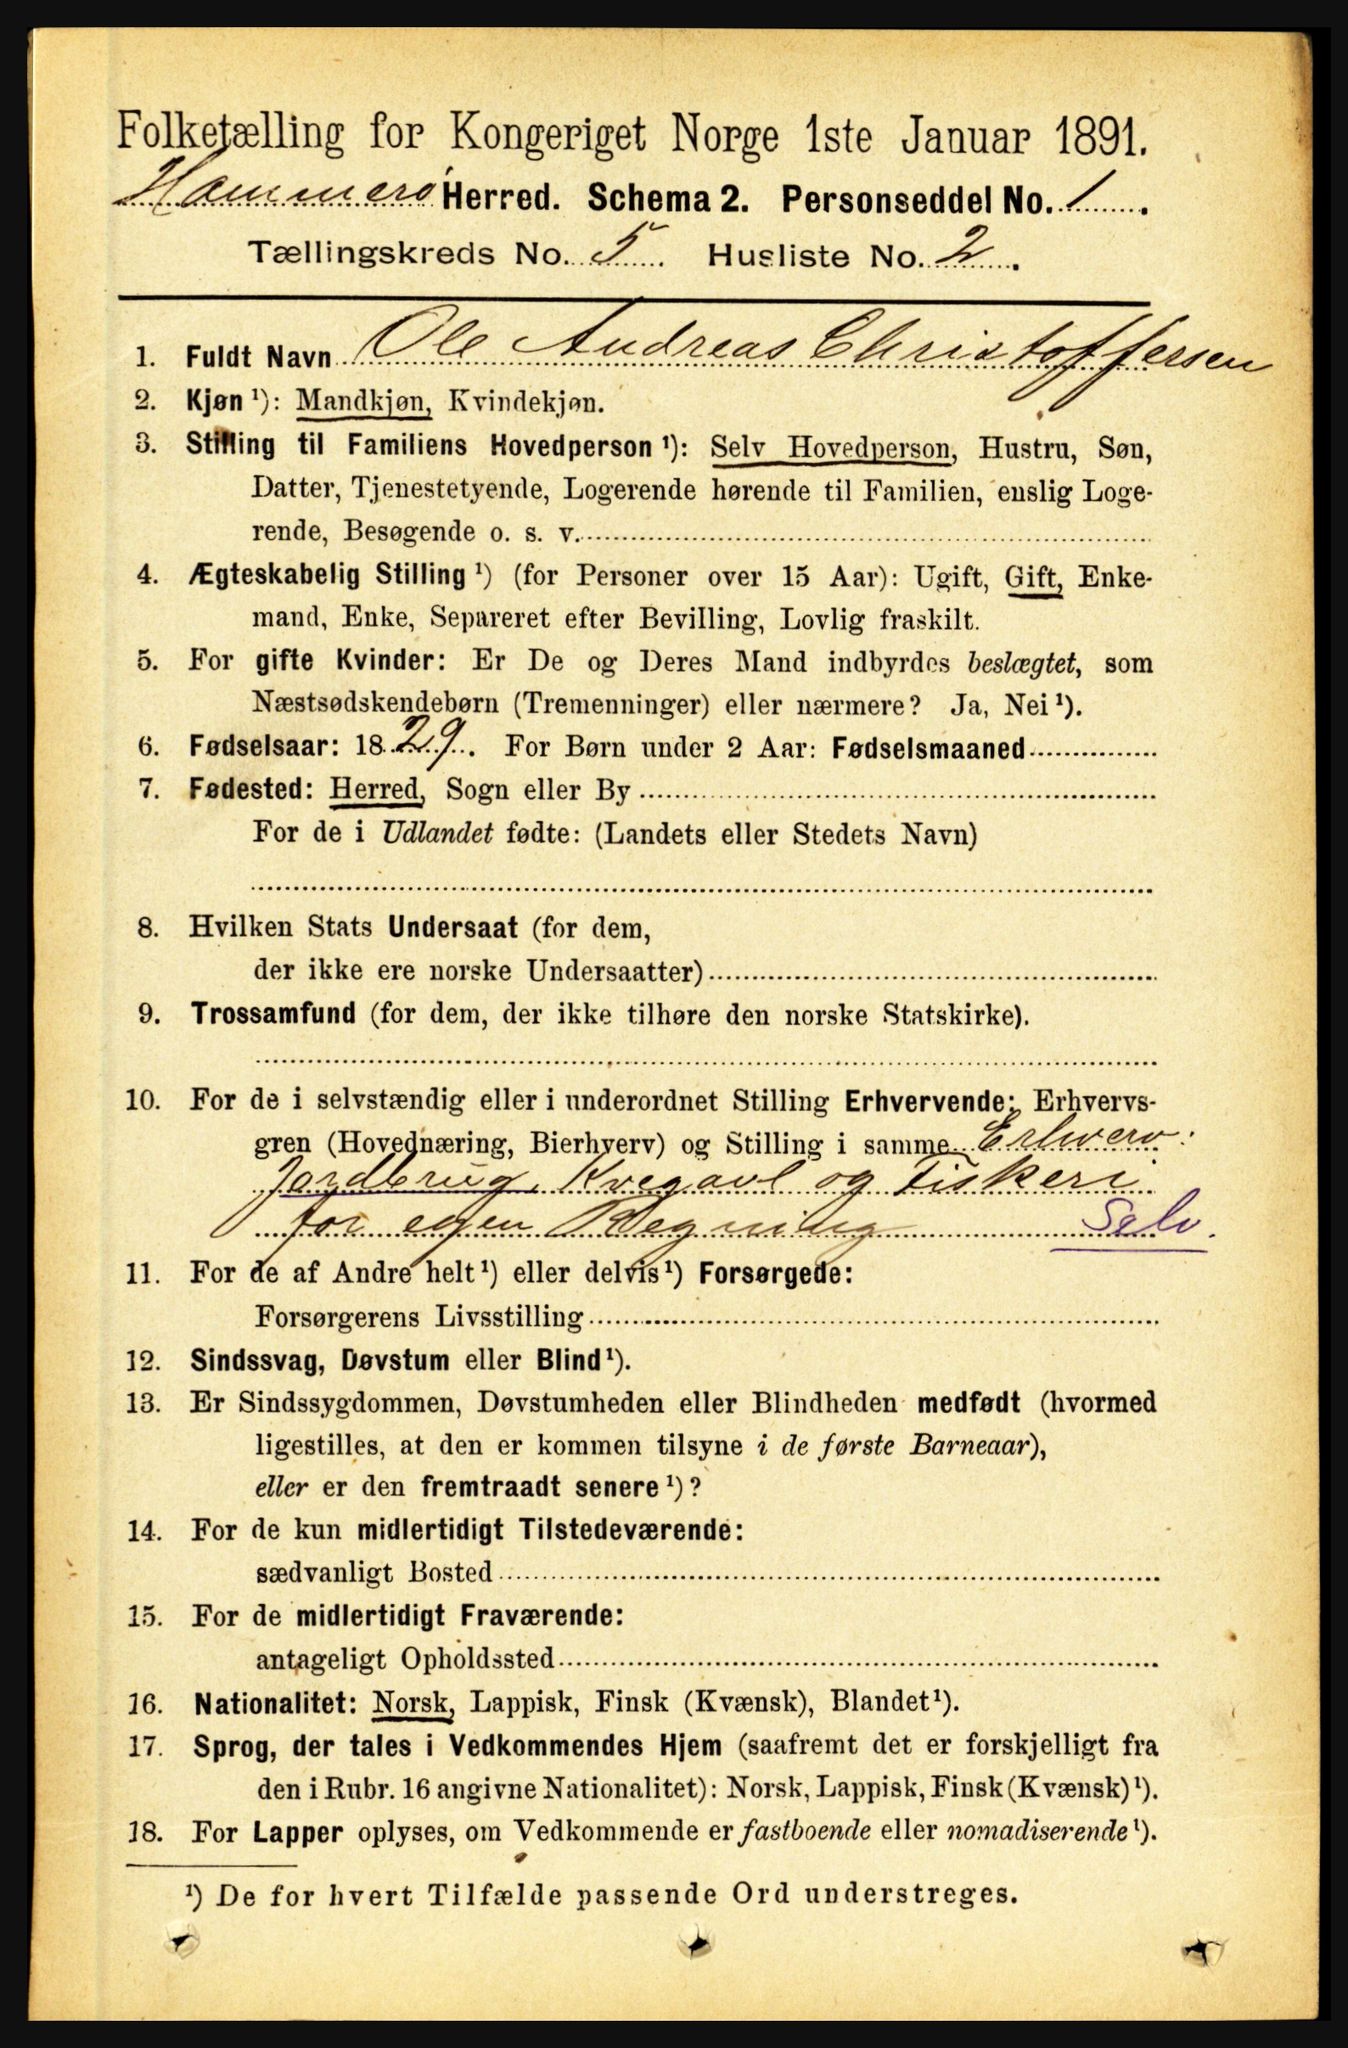 Folketælling for Kongeriget Norge 1ste Januar 1891.
Hammerø Herred. Schema 2. Personseddel No. 1.
Tællingskreds No. 5. Husliste No. 2.
1. Fuldt Navn Ole Andreas Christoffersen
2. Kjøn ¹): Mandkjøn, Kvindekjøn.
3. Stilling til Familiens Hovedperson ¹): Selv Hovedperson, Hustru, Søn,
Datter, Tjenestetyende, Logerende hørende til Familien, enslig Loge-
rende, Besøgende o. s. v.
4. Ægteskabelig Stilling ¹) (for Personer over 15 Aar): Ugift, Gift, Enke-
mand, Enke, Separeret efter Bevilling, Lovlig fraskilt.
5. For gifte Kvinder: Er De og Deres Mand indbyrdes beslægtet, som
Næstsødskendebørn (Tremenninger) eller nærmere? Ja, Nei ¹).
6. Fødselsaar: 1829. For Børn under 2 Aar: Fødselsmaaned
7. Fødested: Herred, Sogn eller By
For de i Udlandet fødte: (Landets eller Stedets Navn)
8. Hvilken Stats Undersaat (for dem,
der ikke ere norske Undersaatter)
9. Trossamfund (for dem, der ikke tilhøre den norske Statskirke).
10. For de i selvstændig eller i underordnet Stilling Erhvervende: Erhvervs-
gren (Hovednæring, Bierhverv) og Stilling i samme Erhverv:
Jordbrug, Kvegavl og Fiskeri
for egen Regning Selv.
11. For de af Andre helt ¹) eller delvis ¹) Forsørgede:
Forsørgerens Livsstilling
12. Sindssvag, Døvstum eller Blind ¹).
13. Er Sindssygdommen, Døvstumheden eller Blindheden medfødt (hvormed
ligestilles, at den er kommen tilsyne i de første Barneaar),
eller er den fremtraadt senere ¹)?
14. For de kun midlertidigt Tilstedeværende:
sædvanligt Bosted
15. For de midlertidigt Fraværende:
antageligt Opholdssted
16. Nationalitet: Norsk, Lappisk, Finsk (Kvænsk), Blandet ¹).
17. Sprog, der tales i Vedkommendes Hjem (saafremt det er forskjelligt fra
den i Rubr. 16 angivne Nationalitet): Norsk, Lappisk, Finsk (Kvænsk) ¹).
18. For Lapper oplyses, om Vedkommende er fastboende eller nomadiserende ¹).
¹) De for hvert Tilfælde passende Ord understreges.